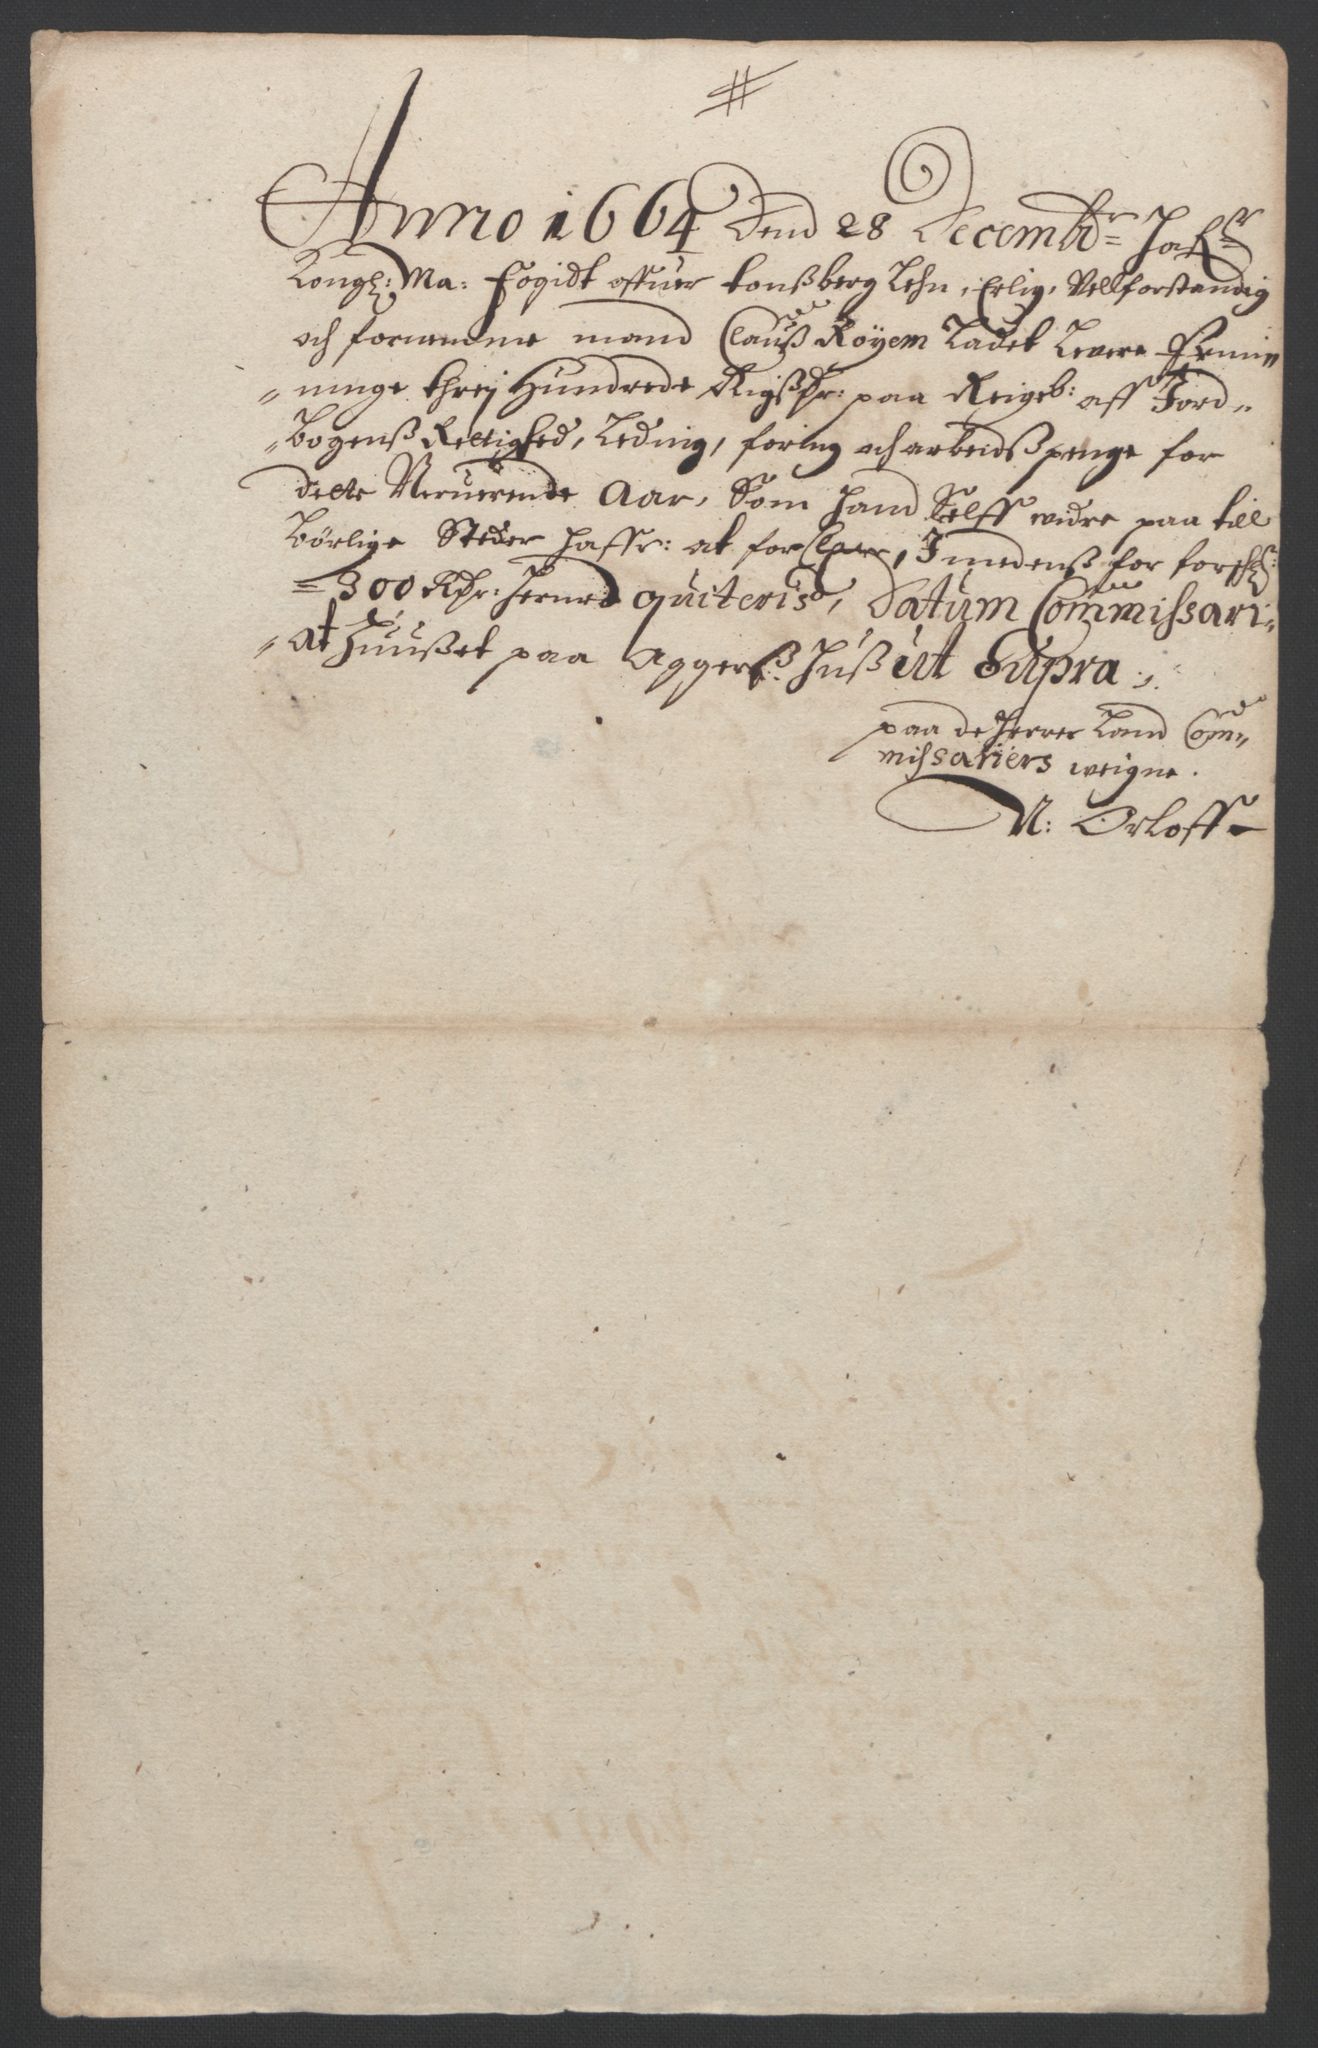 #
Anno 1664 Dend 28 Decembr: Hafr
Kongl: Ma: Fogidt offuer tonßberg Lehn, Erlig, Vellforstandig
och fornemme mand Clauß Röyem Ladet Levere Penninge
"ninge threj Hundrede Rigßdr: paa Reigeb: aff Jord"
"bogenß Rettighed, Ledning, foring och arbeidßpenge for
dette Neruerende Aar, Som hand Selff widre paa till
börlige Steder haffr: at for Clare, Imedenß for forschr:
=300 Rdr: hermed quiteris, Datum Commissari"
"at Huußet paa Aggerß: Huß ut Supra,
paa de Herrer Land Com"
missariers weigne.
N: Orloff